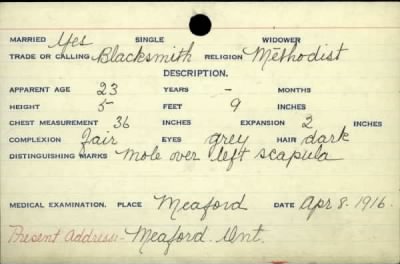 MARRIED Yes SINGLE WIDOWER
TRADE OR CALLING Blacksmith RELIGION Methodist
DESCRIPTION.
APPARENT AGE 23 YEARS - MONTHS
HEIGHT 5 FEET 9 INCHES
CHEST MEASUREMENT 36 INCHES EXPANSION 2 INCHES
COMPLEXION Fair EYES grey HAIR dark
DISTINGUISHING MARKS Mole over left scapula
MEDICAL EXAMINATION. PLACE Meaford DATE Apr 8-1916.
Present Address- Meaford Ont.